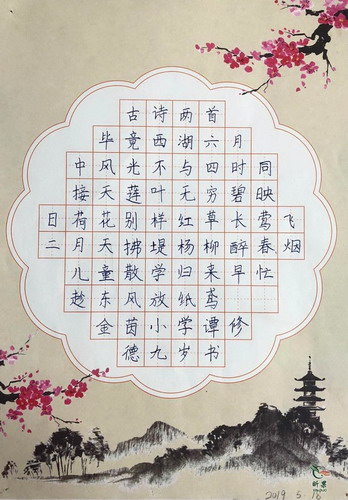 古诗两首
毕竟西湖六月
中风光不与四时同
接天莲叶无穷碧映
日荷花别样红草长莺飞
二月天拂堤杨柳醉春烟
儿童散学归来早忙
趁东风放纸鸢
金茵小学谭修
德九岁书
2019 5. 16